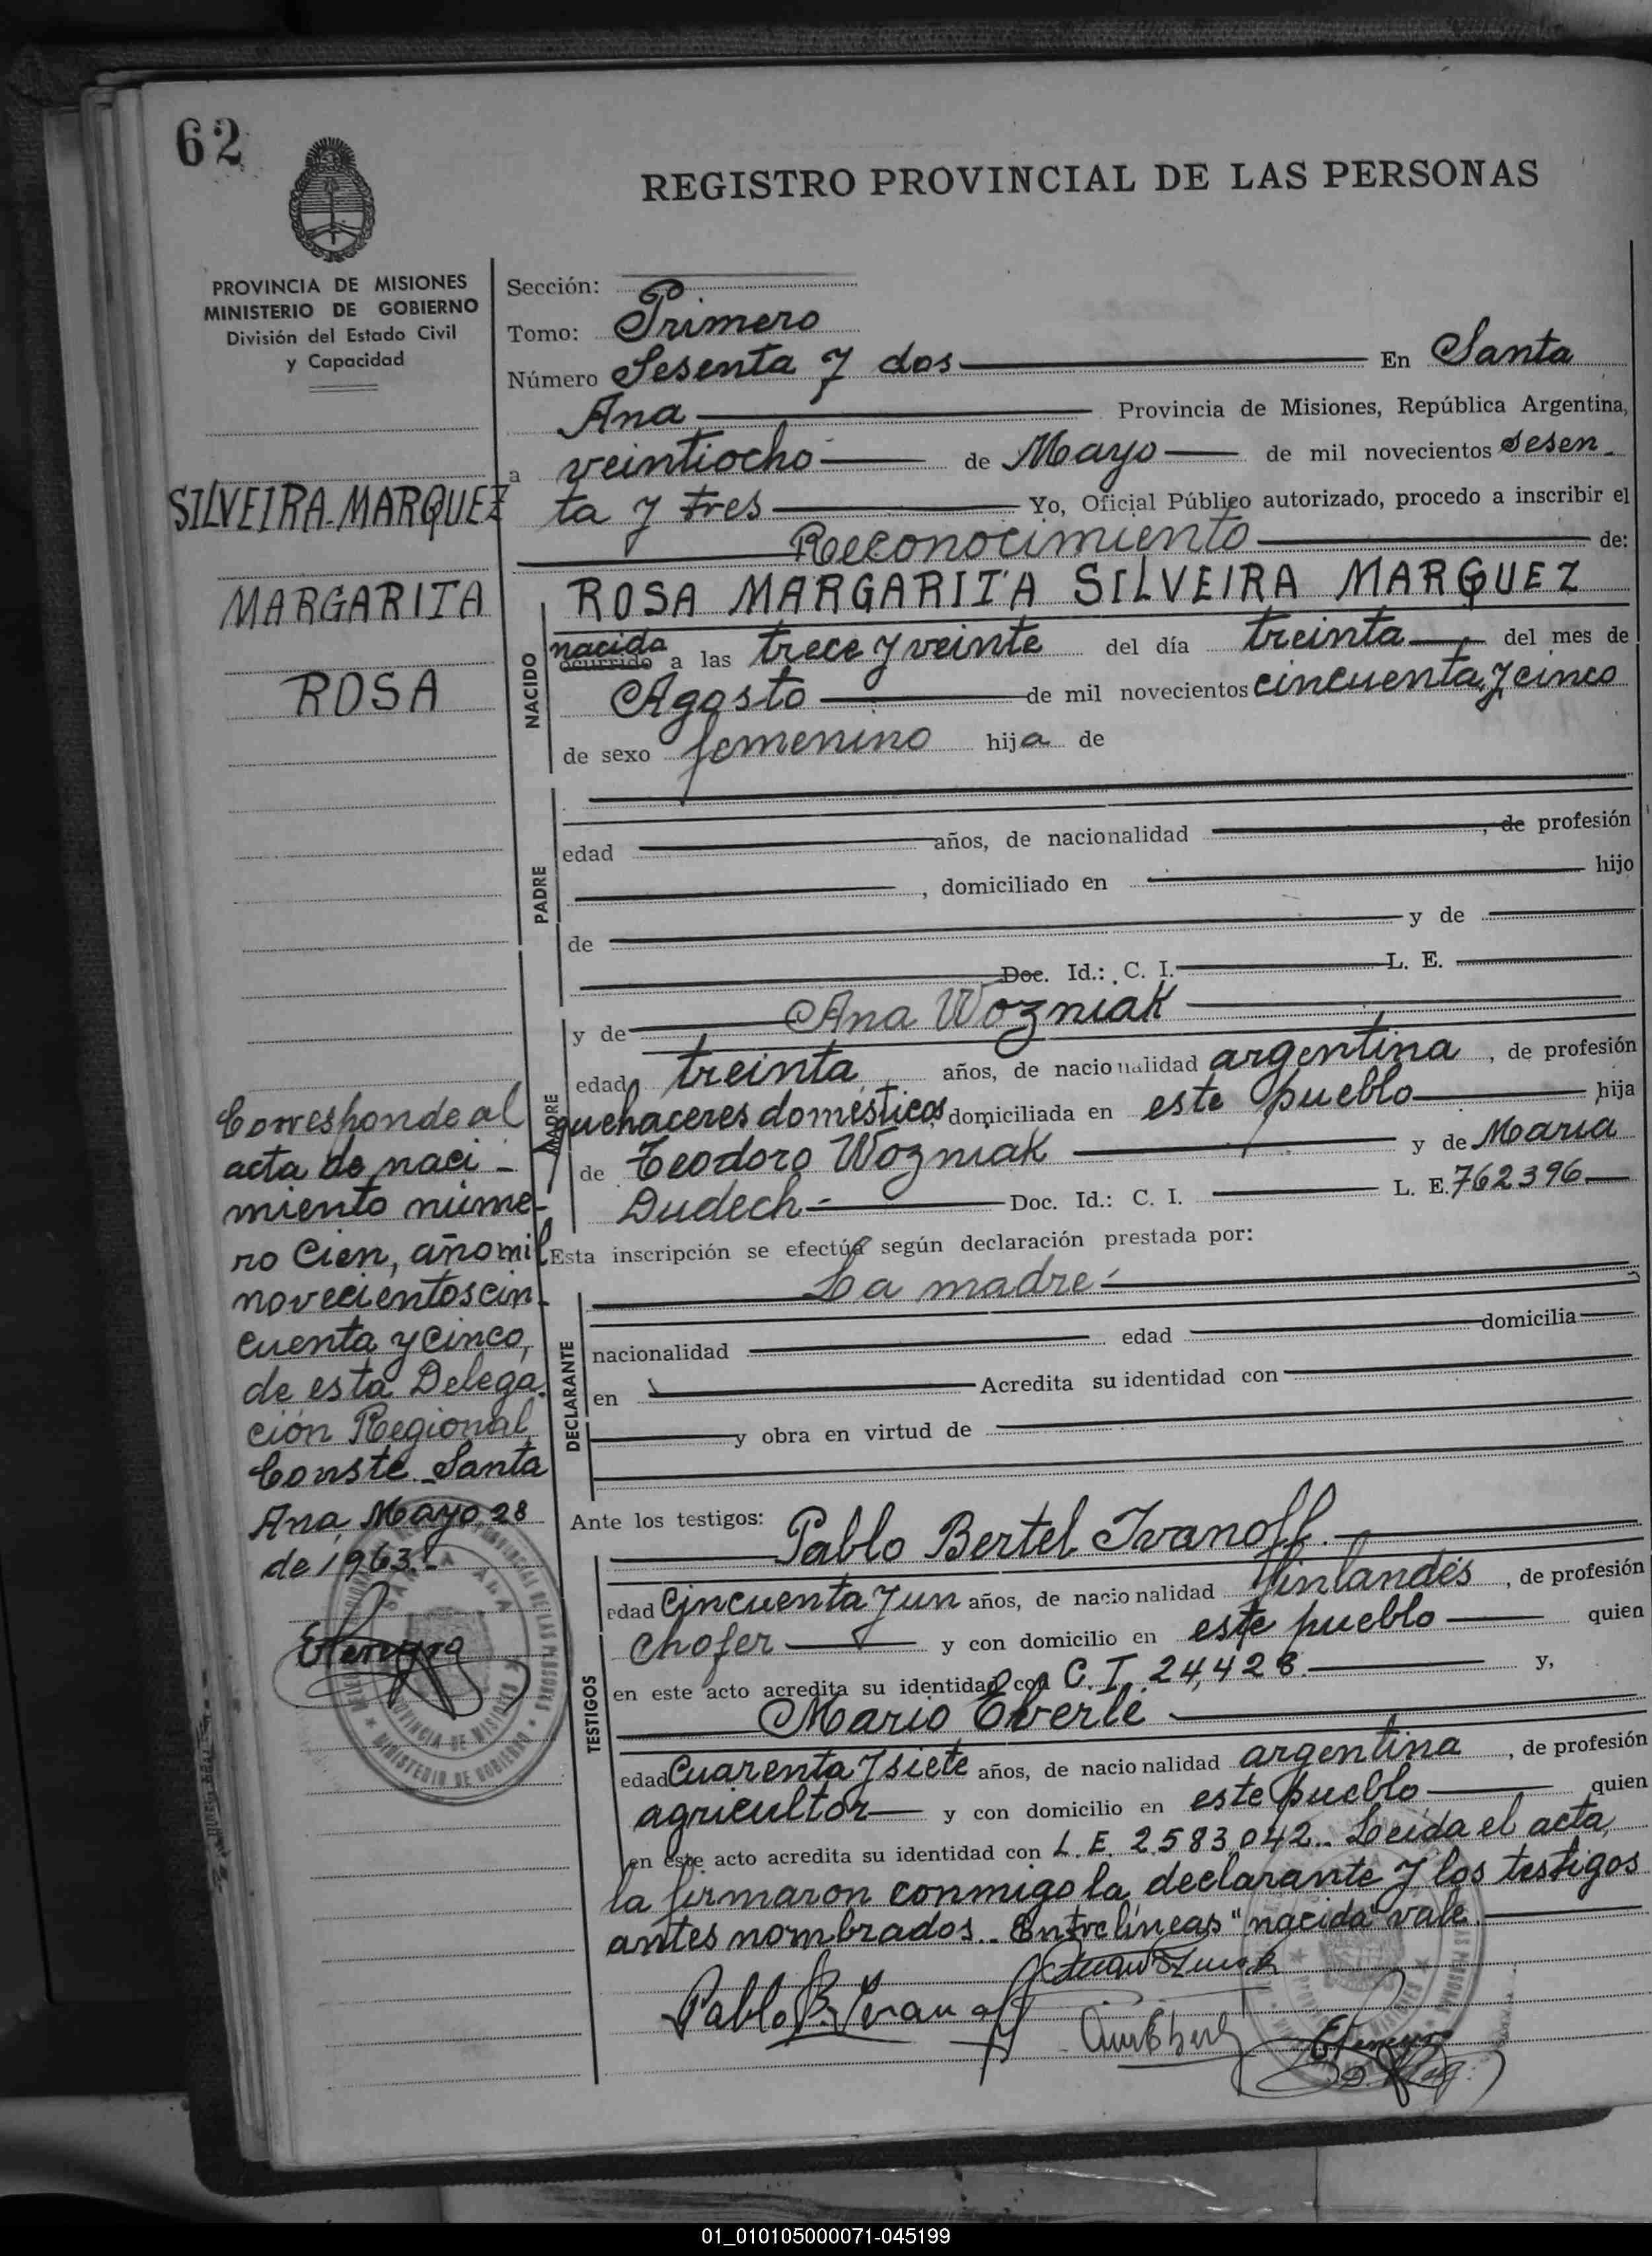 62
REGISTRO PROVINCIAL DE LAS PERSONAS
PROVINCIA DE MISIONES
MINISTERIO DE GOBIERNO
División del Estado Civil
y Capacidad
SILVEIRA-MARQUEZ
MARGARITA
ROSA
Corresponde al
acta de naci-
miento núme-
ro Cien, año mil
novecientos cin-
cuenta y cinco,
de esta Delega-
ción Regional
Conste. Santa
Ana, Mayo, 28
de 1963.-
Sección:
Tomo: Primero
Número Sesenta y dos En Santa
Ana Provincia de Misiones, República Argentina,
a veintiocho de Mayo de mil novecientos sesen-
ta y tres Yo, Oficial Público autorizado, procedo a inscribir el
Reconocimiento de:
NACIDO
ROSA MARGARITA SILVEIRA MARQUEZ
nacida
ocurrido a las trece y veinte del día treinta del mes de
Agosto de mil novecientos cincuenta y cinco
de sexo femenino hija de
PADRE
edad años, de nacionalidad , de profesión
, domiciliado en hijo
de y de
Doc. Id.: C. I. L. E.
MADRE
y de Ana Wozniak
edad treinta años, de nacionalidad argentina , de profesión
quehaceres domésticos domiciliada en este pueblo hija
de Teodoro Wozniak y de Maria
Dudech- Doc. Id.: C. I. L. E. 762396
Esta inscripción se efectúa según declaración prestada por:
DECLARANTE
La madre-
nacionalidad edad domicilia
en Acredita su identidad con
y obra en virtud de
Ante los testigos: Pablo Bertel Ivanoff.
TESTIGOS
edad Cincuenta y un años, de nacionalidad finlandés , de profesión
Chofer y con domicilio en este pueblo quien
en este acto acredita su identidad con C. I. 24,428. y,
Mario Eberle
edad Cuarenta y siete años, de nacionalidad argentina , de profesión
agricultor y con domicilio en este pueblo quien
en este acto acredita su identidad con L. E. 2583042.. Leida el acta,
la firmaron conmigo la declarante y los testigos
antes nombrados.. Entrelíneas "nacida" vale.
Pablo B. Ivanoff
PROVINCIA DE MISIONES
MINISTERIO DE GOBIERNO
SANTA ANA
01_010105000071-045199